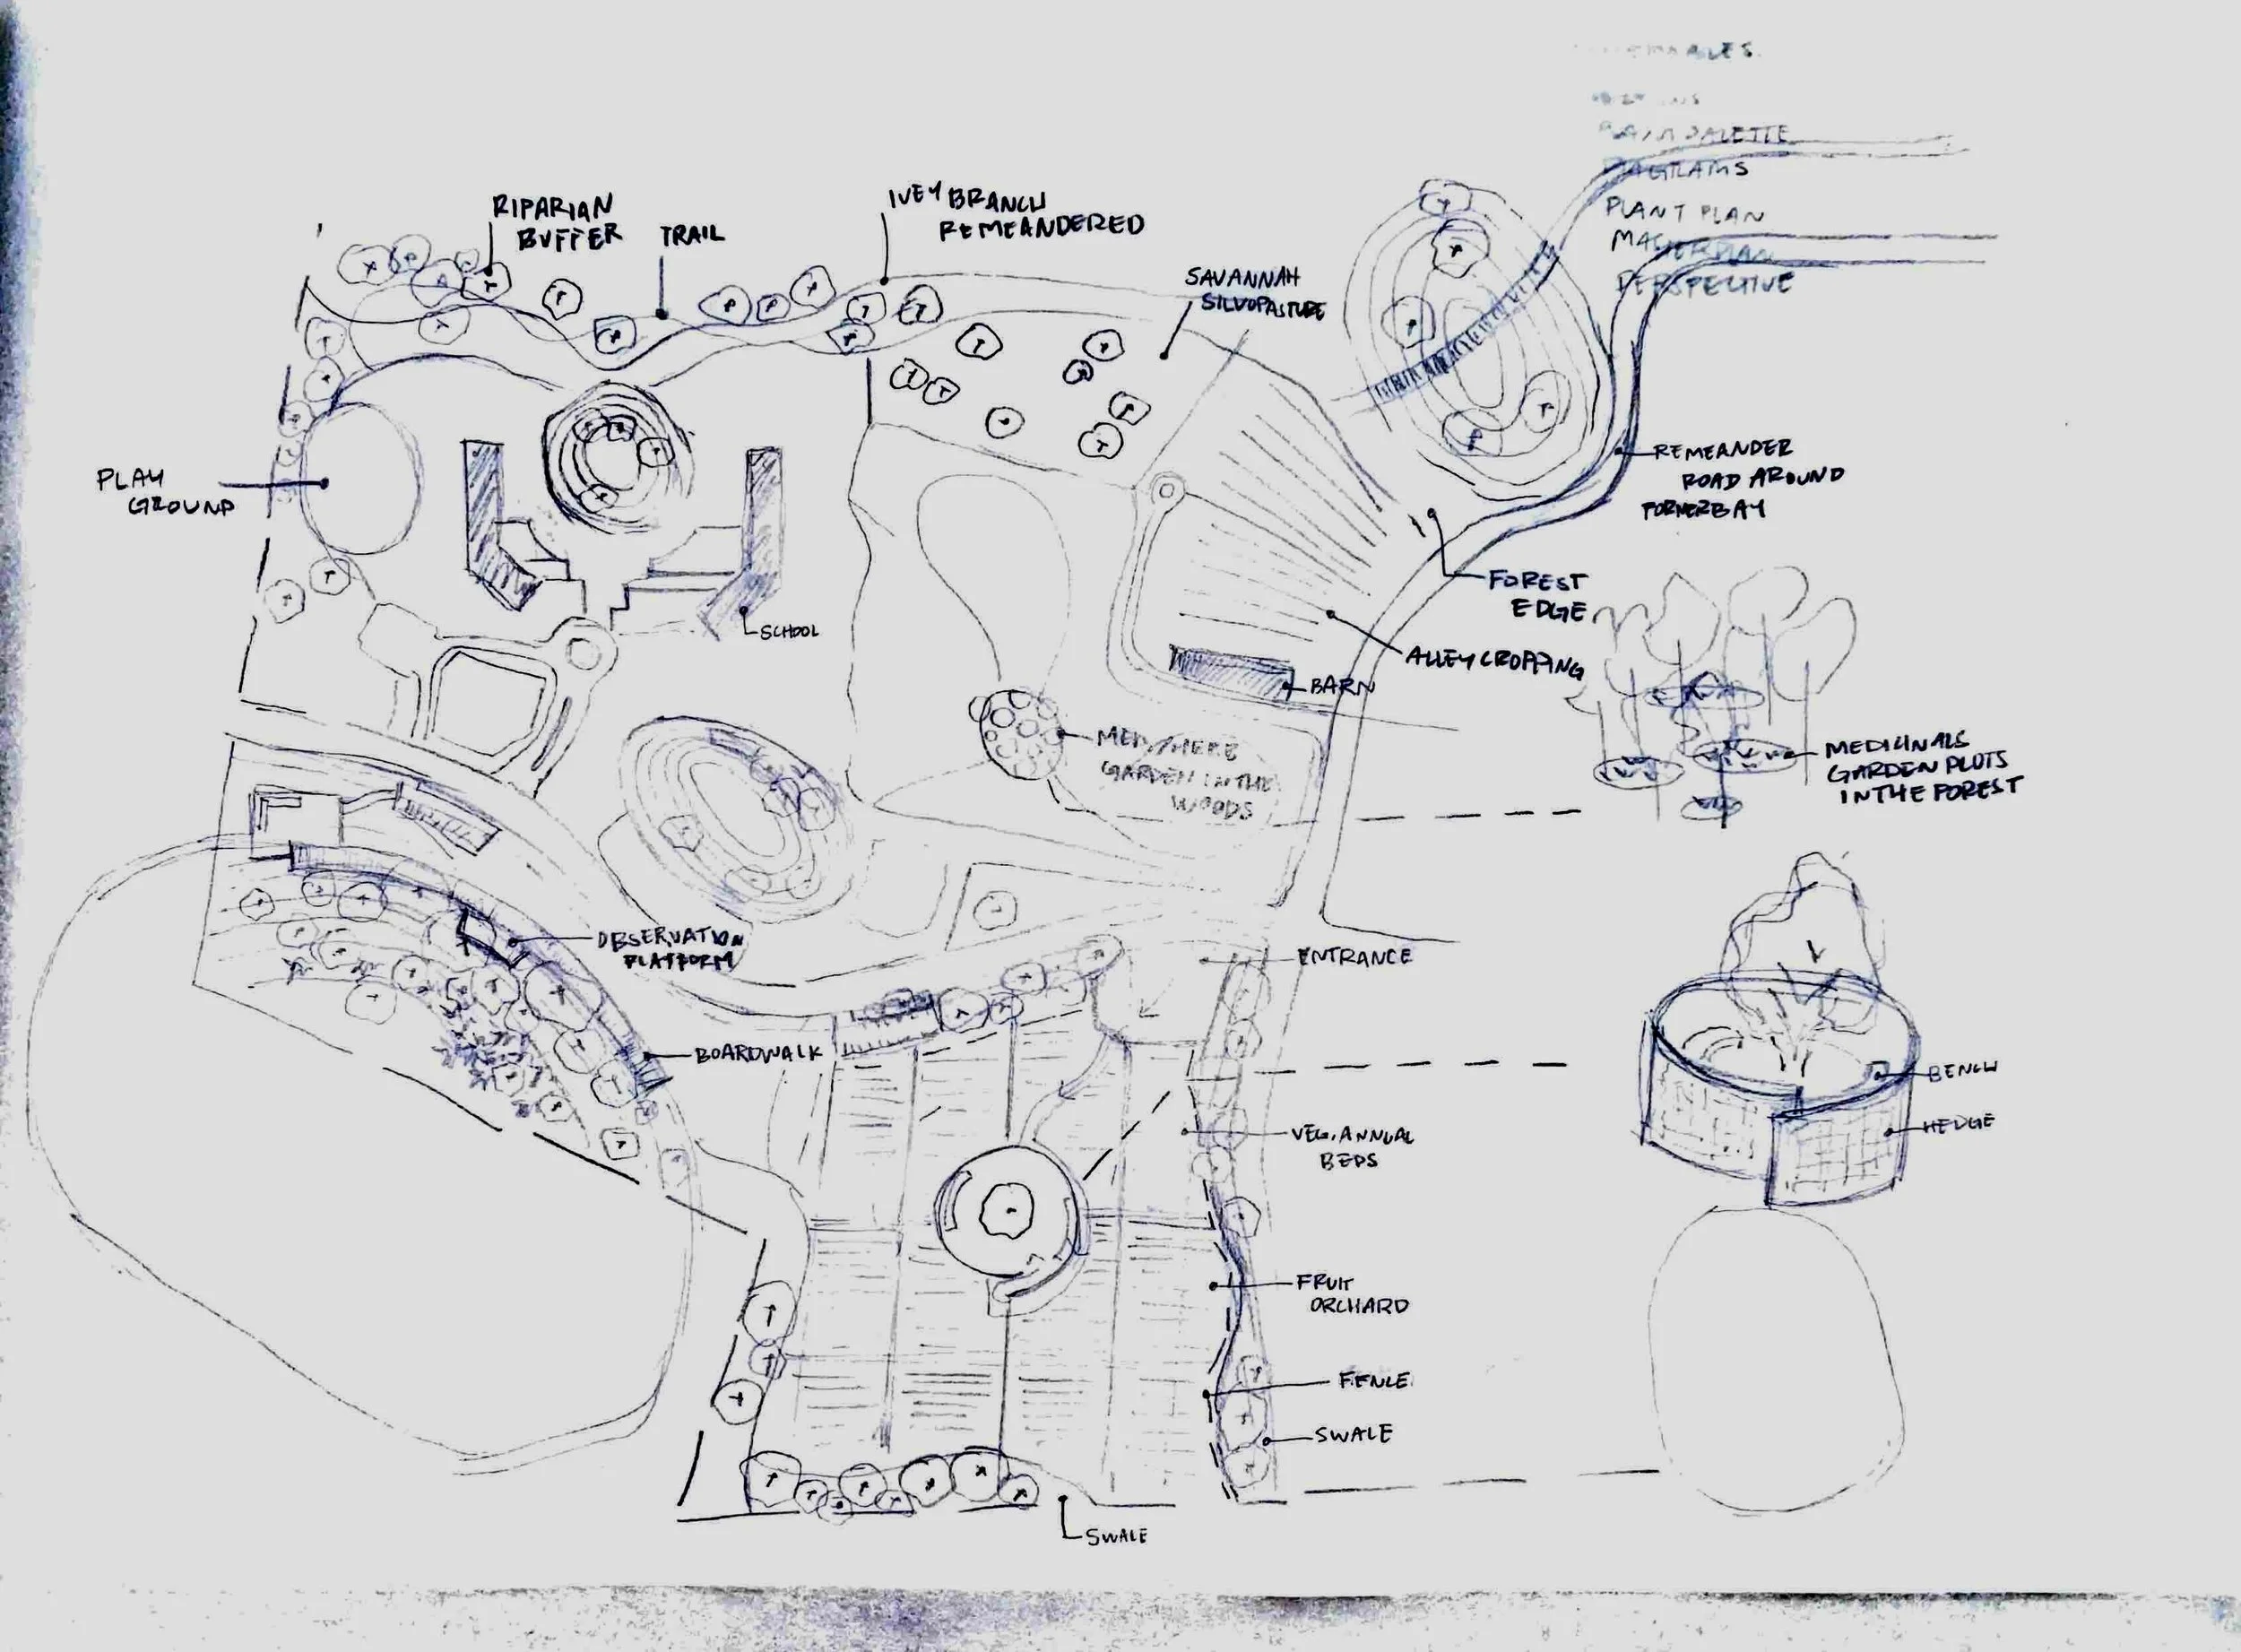 DIAGRAMS
PLANT PLAN
MASTERPLAN
PERSPECTIVE
RIPARIAN
BUFFER
TRAIL
IVEY BRANCH
REMEANDERED
SAVANNAH
SILVOPASTURE
PLAY
GROUND
SCHOOL
REMEANDER
ROAD AROUND
FORMER BAY
FOREST
EDGE
ALLEY CROPPING
BARN
MED/HERB
GARDEN IN THE
WOODS
MEDICINALS
GARDEN PLOTS
IN THE FOREST
OBSERVATION
PLATFORM
ENTRANCE
BOARDWALK
BENCH
HEDGE
VEG. ANNUAL
BEDS
FRUIT
ORCHARD
FENCE
SWALE
SWALE